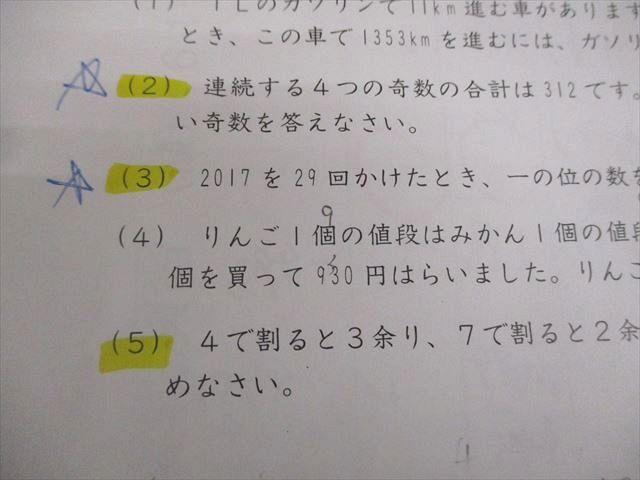 (1) 1Lのガソリンで11km進む車があります
とき、この車で1353kmを進むには、ガソリ
(2) 連続する4つの奇数の合計は312です。
い奇数を答えなさい。
(3) 2017を29回かけたとき、一の位の数を
9
(4) りんご1個の値段はみかん1個の値段
個を買って930円はらいました。りんご
(5) 4で割ると3余り、7で割ると2余
めなさい。